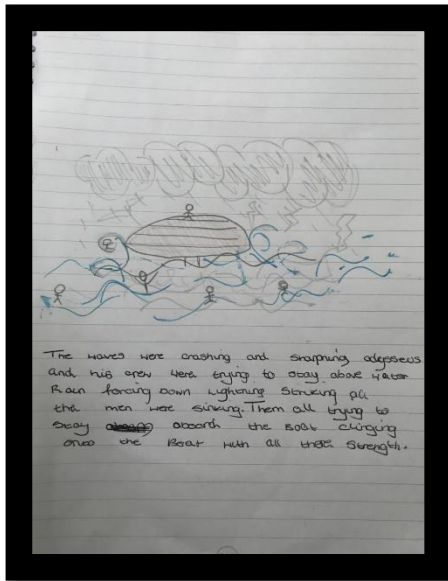 The waves were crashing and snarphing odepseus
and his crew were trying to stay above water
Rain forcing Down Lightening Striking all
the men were sinking. Them all trying to
stay aboard the Boat clinging
onto the Boat with all there strength.